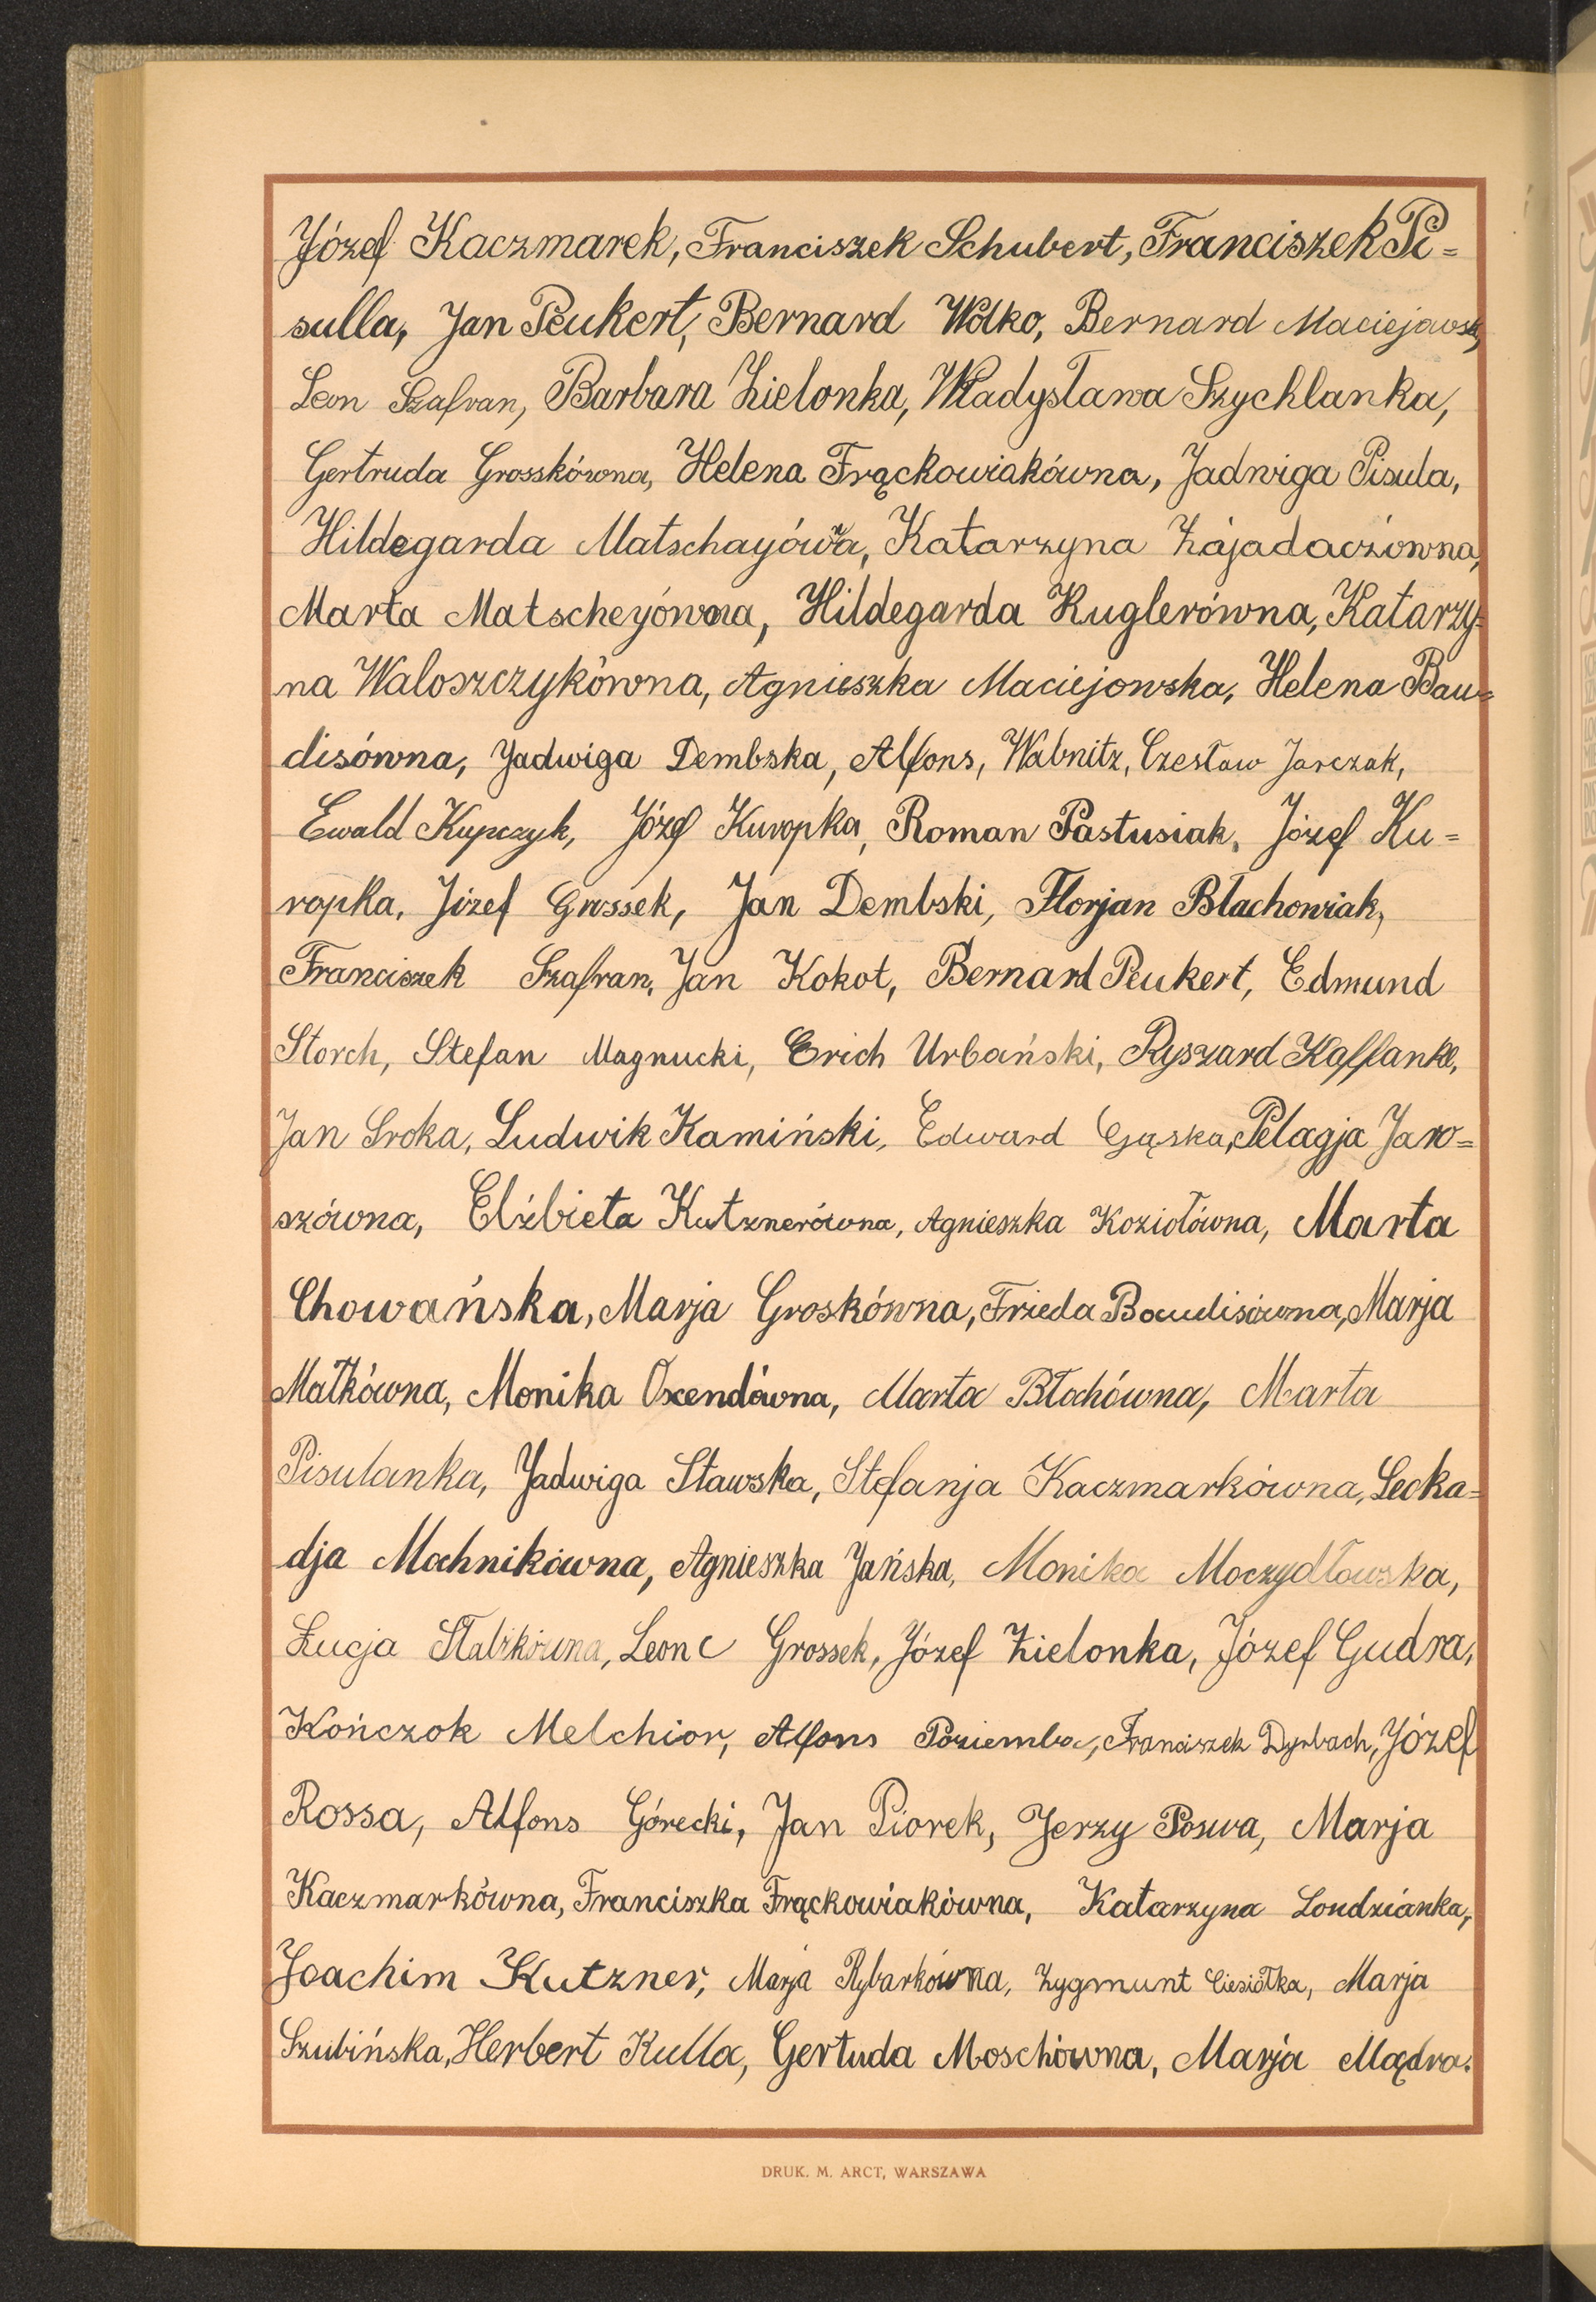 Józef Kaczmarek, Franciszek Schubert, Franciszek Pi=
sulla, Jan Peukert, Bernard Wołko, Bernard Maciejowski,
Leon Szafran, Barbara Zielonka, Władysława Szychlanka,
Gertruda Grosskówna, Helena Frąckowiakówna, Jadwiga Pisula,
Hildegarda Matschayówna, Katarzyna Zajadaczówna,
Marta Matscheyówna, Hildegarda Kuglerówna, Katarzy=
na Waloszczykówna, Agnieszka Maciejowska, Helena Bau=
disówna, Jadwiga Dembska, Alfons, Wabnitz, Czesław Jarczak,
Ewald Kupczyk, Józef Kuropka, Roman Pastusiak, Józef Ku=
ropka, Józef Grossek, Jan Dembski, Florjan Błachowiak,
Franciszek Szafran, Jan Kokot, Bernard Peukert, Edmund
Storch, Stefan Magnucki, Erich Urbański, Ryszard Kafflanke,
Jan Sroka, Ludwik Kamiński, Edward Gąska, Pelagja Jaro=
szówna, Elżbieta Kutznerówna, Agnieszka Koziołówna, Marta
Chowańska, Marja Groskówna, Frieda Baudisówna, Marja
Małkówna, Monika Oxendówna, Marta Błachówna, Marta
Pisulanka, Jadwiga Stawska, Stefanja Kaczmarkówna, Leoka=
dja Machnikówna, Agnieszka Jańska, Monika Moczydłowska,
Łucja Leon Grossek, Józef Zielonka, Józef Gudra,
Kończok Melchior, Alfons Poziemba, Franciszek Dyrbach, Józef
Rossa, Alfons Górecki, Jan Piorek, Jerzy Poswa, Marja
Kaczmarkówna, Franciszka Frąckowiakówna, Katarzyna Londzianka,
Joachim Kutzner, Marja Rybarkówna, Zygmunt Ciesiołka, Marja
Szubińska, Herbert Kulla, Gertuda Moschówna, Marja Mądra.
DRUK. M. ARCT, WARSZAWA